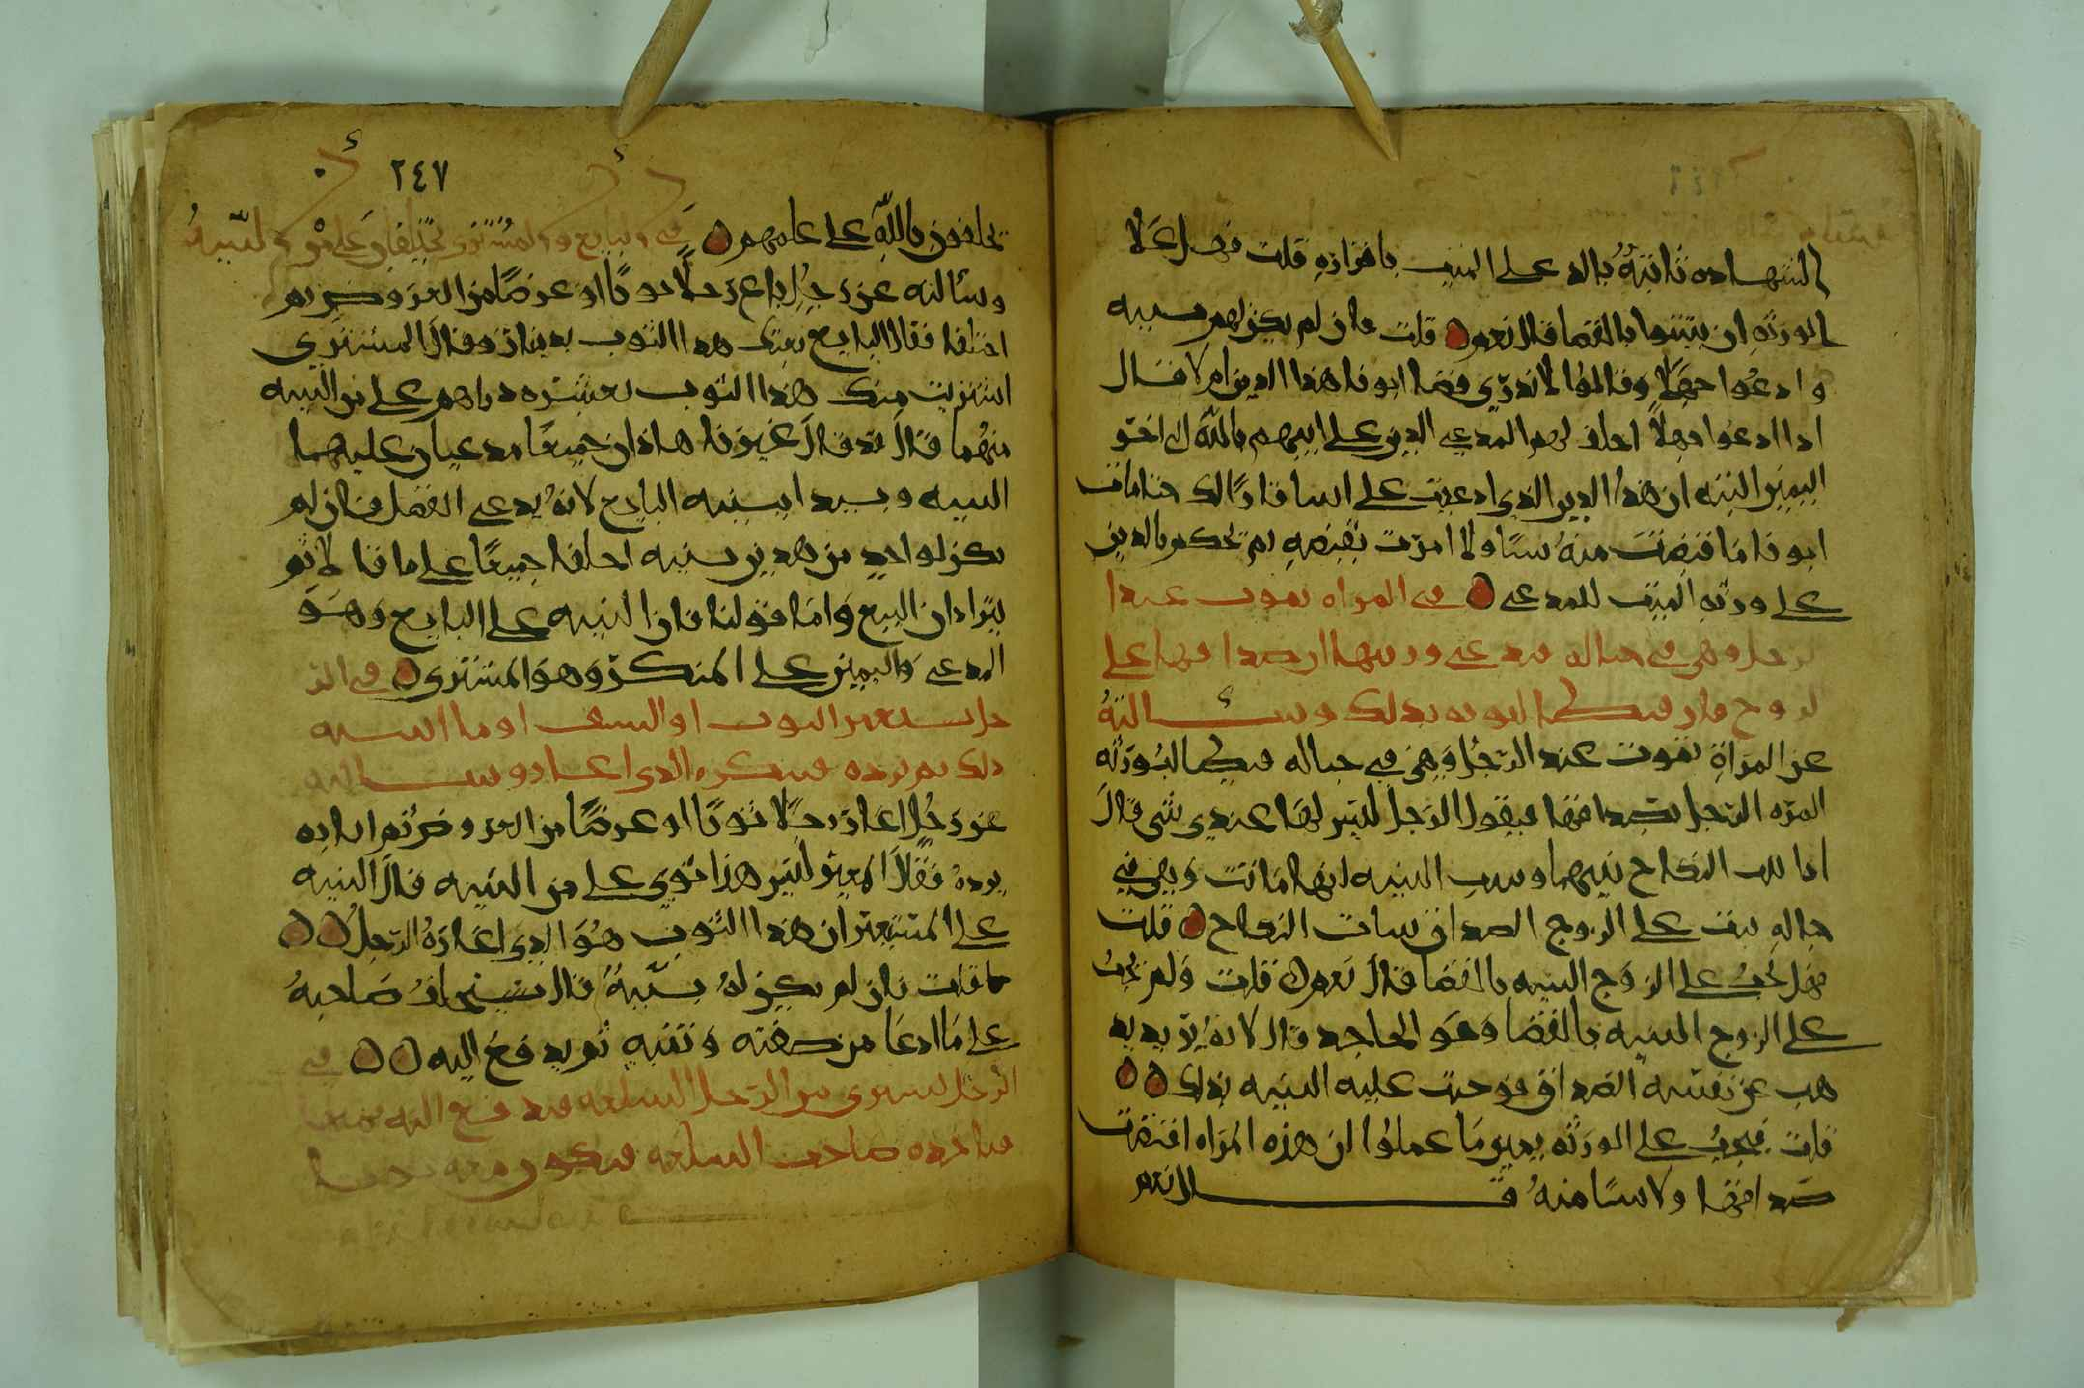 الشهاده ثابتةٌ بالد على الميت باقراره قلت فهل على
الورثه ان يثبتوا بالقضا قال نعم قلت فان لم يكن لهم بينه
وادعوا جهلا وقالوا لا ندري قضا ابونا هذا الدين ام لا قال
اذا ادعوا جهلاً احلف لهم المدعي الدين على ابيهم بالله
اليمين البته ان هذا الدين الذي ادعيت على ابينا حتا مات
ابونا ما قبضت منه شيا ولا امرت بقبضه ثم يحكم بالدين
على ورثه الميت للمدعي في المراه تموت عند ا
لرجل وهي في حباله فيدعي ورثتها ان صداقها على
الزوج وسالته
عن المراة تموت عند الرجل وهي في حباله فيطلب ورثه
المره الرجل بصداقها فيقول الرجل ليس لها عندي شي قال
اذا ثبت النكاح بينهما وثبت البينه انها ماتت وهي في
حباله ثبت على الزوج الصداق بثبات النكاح قلت
فهل تجب على الزوج البينه بالقضا قال نعم قلت ولم تجب
على الزوج البينه بالقضا وهو الجاحد قال لانه يريد يذ
هب عن نفسه الصداق فوجبت عليه البينه بذلك
قلت فيجب على الورثه يمين ما علموا ان هذه المراه اقتضت
صداقها ولا شيا منه قال نعم
٢٤٧
يحلفون بالله على علمهم في البايع والمشتري يختلفان على من البينه
وسالته عن رجل باع رجلا ثوبا او عرضا من العروض ثم
اختلفا فقال البايع بعتك هذا الثوب بدينار وقال المشتري
اشتريت منك هذا الثوب بعشره دراهم على من البينه
منهما قال قد قال غيرنا هاذان جميعا مدعيان عليهما
البينه ويبدا ببينه البايع لانه يدعي الفضل فان لم
يكن لواحد من هذين بينه احلفا جميعا على ما قالا ثم
يترادان البيع واما قولنا فان البينه على البايع وهو
المدعي واليمين على المنكر وهو المشتري في الر
جل يستعير الثوب او السيف او ما اشبه
ذلك ثم يرده فينكره الذي اعار وسالته
عن رجل اعار رجلا ثوبا او عرضا من العروض ثم اراد
يرده فقال المعير ليس هذا ثوبي على من البينه قال البينه
على المستعير ان هذا الثوب هو الذي اعاره الرجل
قلت فان لم يكن له بينة قال يستحلف صاحبه
على ما ادعا من صفته وقيمته ثم يدفع اليه في
الرجل يشتري من الرجل السلعه فيدفع اليه
صاحب السلعه فيكون معه